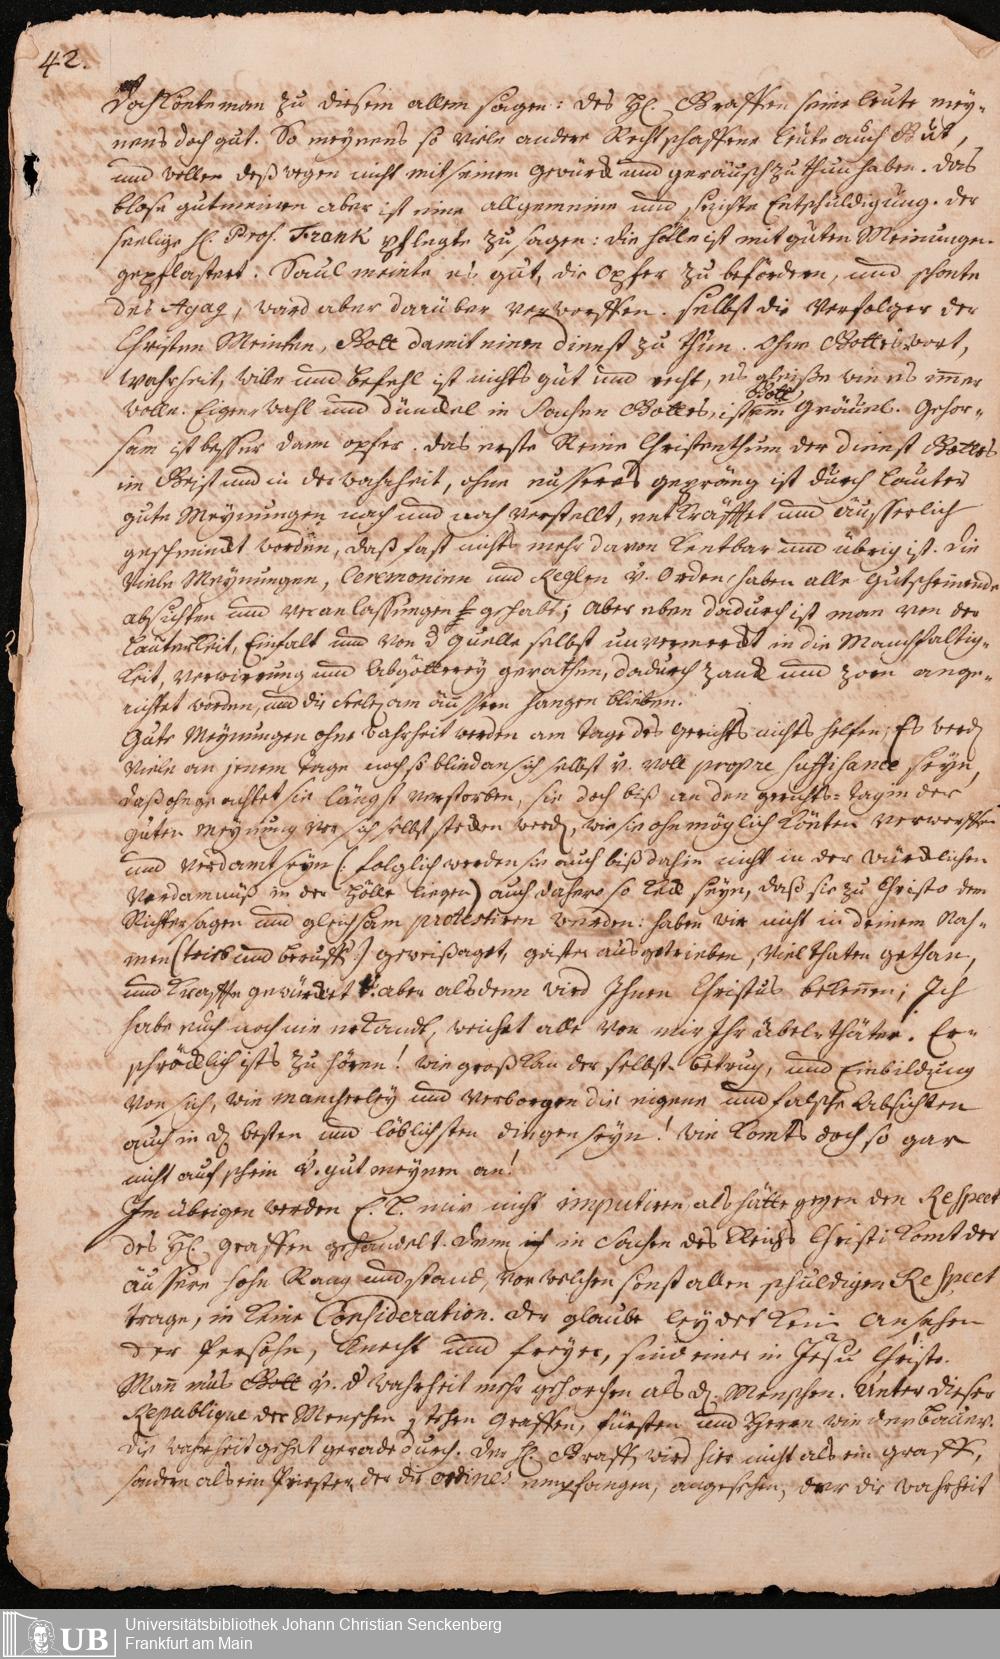 42.
Doch könte man zu diesem allem sagen: des H. Graffen seine leute mey-
nens doch gut. So meynens so viele andere Rechtschaffene leute auch Gut,
und wollen deßwegen nicht mit seinem gewürck und geräusch zu thun haben. Das
blose gutmeinen aber ist eine allgemeine und seichte Entschuldigung. Der
seelige H. Prof. Frank pflegte zu sagen: die hölle ist mit guten Meinungen
gepflastert. Saul meinte es gut, die Opfer zu befördern, und schonte
des Agag, ward aber darüber verworffen. selbst die Verfolger der
Christen Meinten, Gott damit einen dienst zu thun. Ohne Gottes wort,
wahrheit, wille und befehl ist nichts gut und recht, es gleisse wie es immer
wolle. Eigene wahl und dünckel in Sachen Gottes, ist Gott ein Gräuel. Gehor-
sam ist besser dann opfer. Das erste Reine Christenthum der dienst Gottes
im Geist und in der wahrheit, ohne eusseres gepräng ist durch lauter
gute Meynungen nach und nach verstellt, entkräfftet und äusserlich
geschminckt worden, daß fast nichts mehr davon kentbar und übrig ist. Die
viele Meynungen, Ceremonien und Reglen v. Orden haben alle gutscheinende
absichten und veranlassungen gehabt; aber eben dadurch ist man von der
lauterkeit, Einfalt und von d quelle selbst unvermerckt in die Manchfaltig-
keit, verwirrung und Abgötterey gerathen, dadurch zanck und zorn ange-
richtet worden, und die seelen am äussern hangen blieben.
Gute Meynungen ohne wahrheit werden am tage des gerichts nichts helfen; Es werd.
viele an jenem tage noch so blind an sich selbst v. voll propre suffisance seyn,
daß ohngeachtet sie längst verstorben, sie doch biß an den gerichts-tag in der
guten meynung vor sich selbst stecken werd., wie sie ohnmöglich könten verworffen
und verdamt seyn (: folglich werden sie auch biß dahin nicht in der würcklichen
verdamnuß in der Hölle liegen) auch dahero so keck seyn, daß sie zu Christo dem
Richter sagen und gleichsam protestiren werden: haben wir nicht in deinem Nah-
men (trieb und beruff:) geweissaget, geister ausgetrieben, viel thaten gethan,
und kraffte gewürcket v. aber alsdenn wird Ihnen Christus bekennen; Ich
habe euch noch nie erkandt, weichet alle von mir Ihr übelthäter. Er-
schröcklich ists zu hören! wie groß kan der selbst-betrug, und Einbildung
von sich, wie mancherley und verborgen die eigene und falsche Absichten
auch in d. besten und löblichsten dingen seyn! wie komts doch so gar
nicht auf schein v. gut meynen an!
Im übrigen werden E. L. mir nicht imputiren als hätte gegen den Respect
des H. graffen gehandelt. denn in Sachen des Reichs Christi komt der
äussere hohe Rang und stand, vor welchen sonst allen schuldigen Respect
trage, in keine Consideration. Der glaube leydet kein ansehen
der Persohn, knecht und freyer, sind einer in Jesu Christo.
Man mus Gott v. d wahrheit mehr gehorchen als d. Menschen. Unter dieser
Republique der Menschen stehen graffen, fürsten und Herren wie der bauer.
die wahrheit gehet gerade durch. Der H. Graff, wird hier nicht als ein graff,
sondern als ein Priester, der die ordines empfangen, angesehen, der die wahrheit
Universitätsbibliothek Johann Christian Senckenberg
Frankfurt am Main
UB